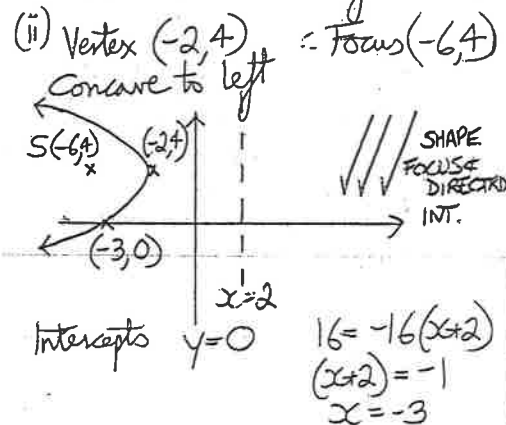 (ii) Vertex (-2,4) ∴ Focus (-6,4)
Concave to left
S(-6,4) (-2,4)
SHAPE
FOCUS &
DIRECTRIX
INT.
(-3,0)
x=2
Intercepts y=0
16 = -16(x+2)
(x+2) = -1
x = -3